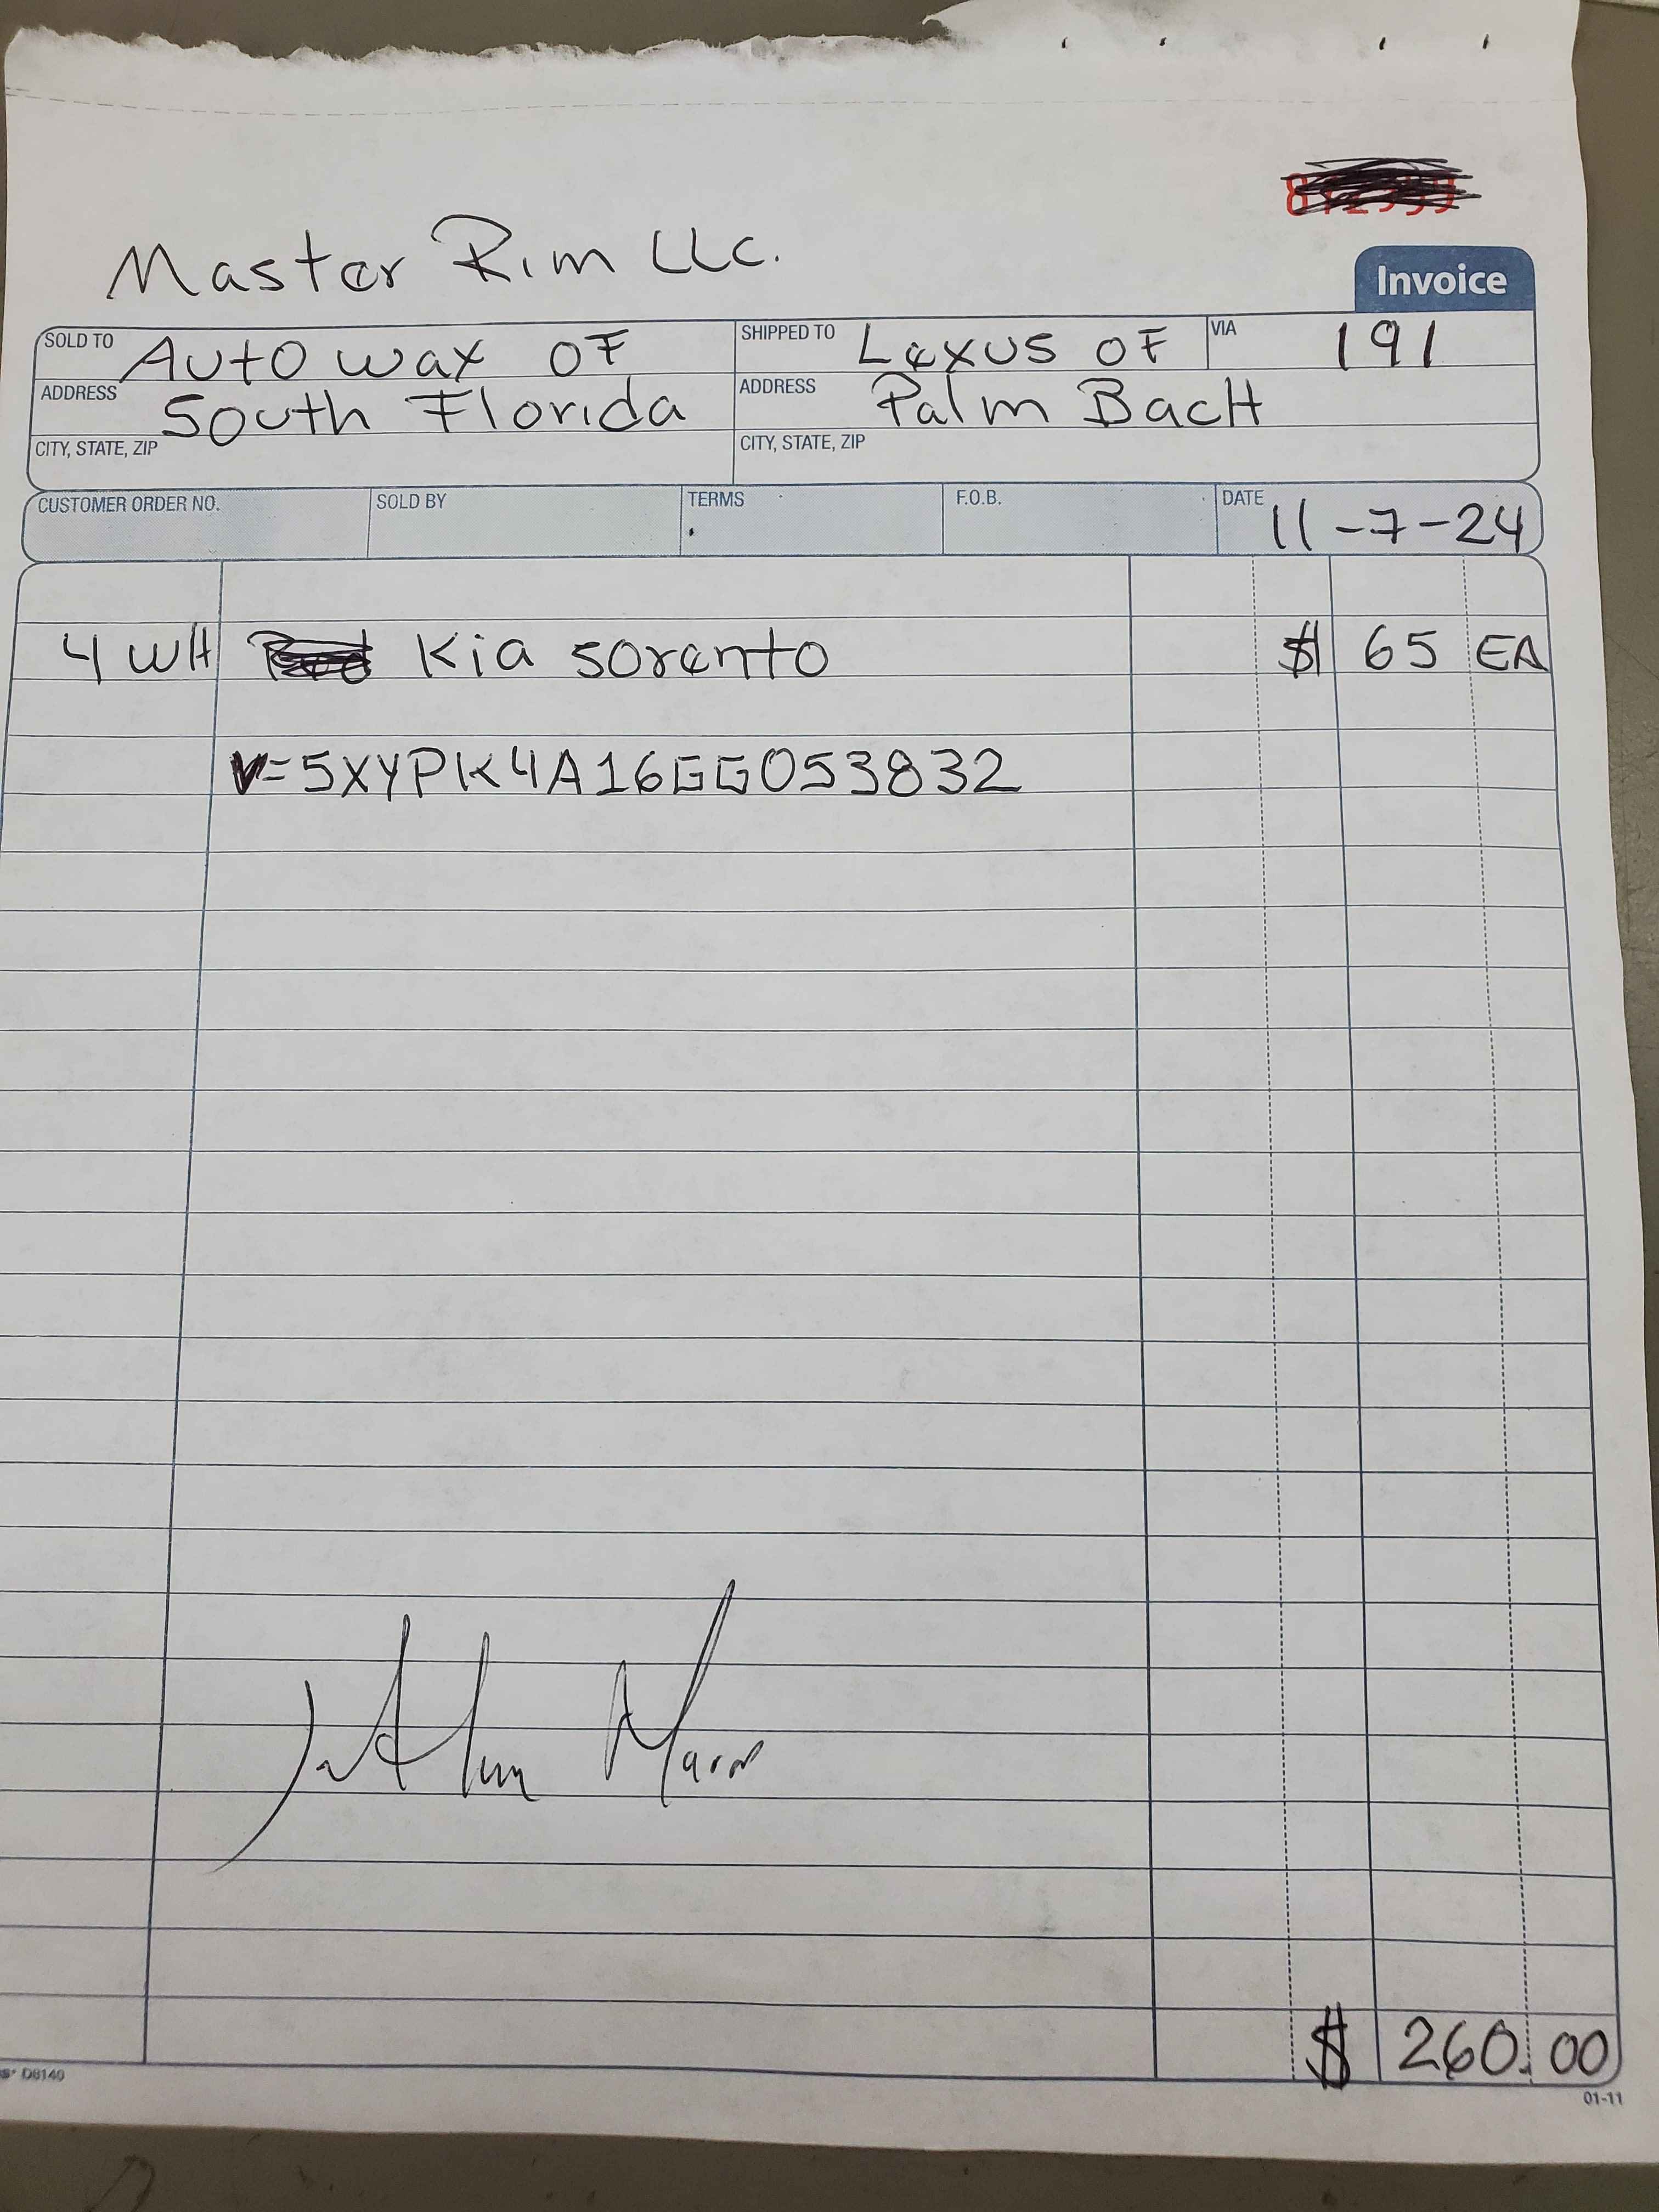 Master Rim LLC.
Invoice
SOLD TO Auto wax OF
SHIPPED TO Lexus OF
VIA 191
ADDRESS South Florida
ADDRESS Palm BacH
CITY, STATE, ZIP
CITY, STATE, ZIP
CUSTOMER ORDER NO. SOLD BY TERMS F.O.B. DATE 11-7-24
4 WH Kia sorento $ 65 EA
V=5XYPK4A16GG053832
$ 260.00
D8140
01-11